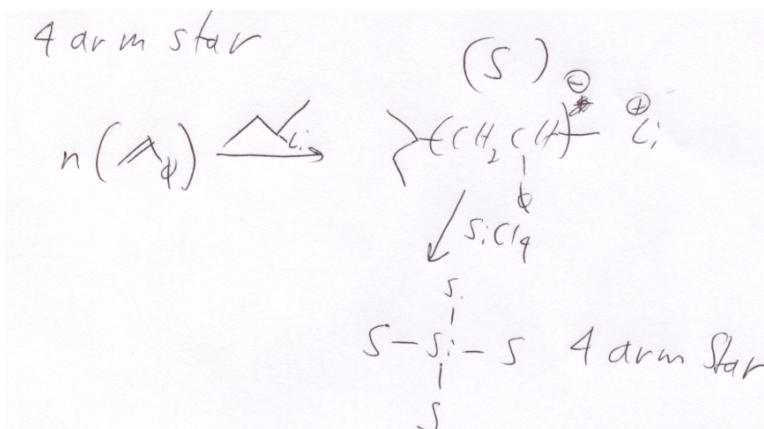 4 arm star
(S)
n( ϕ) Li (CH2CH) ⊖ ⊕ Li
ϕ
SiCl4
S
S-Si-S 4 arm Star
S